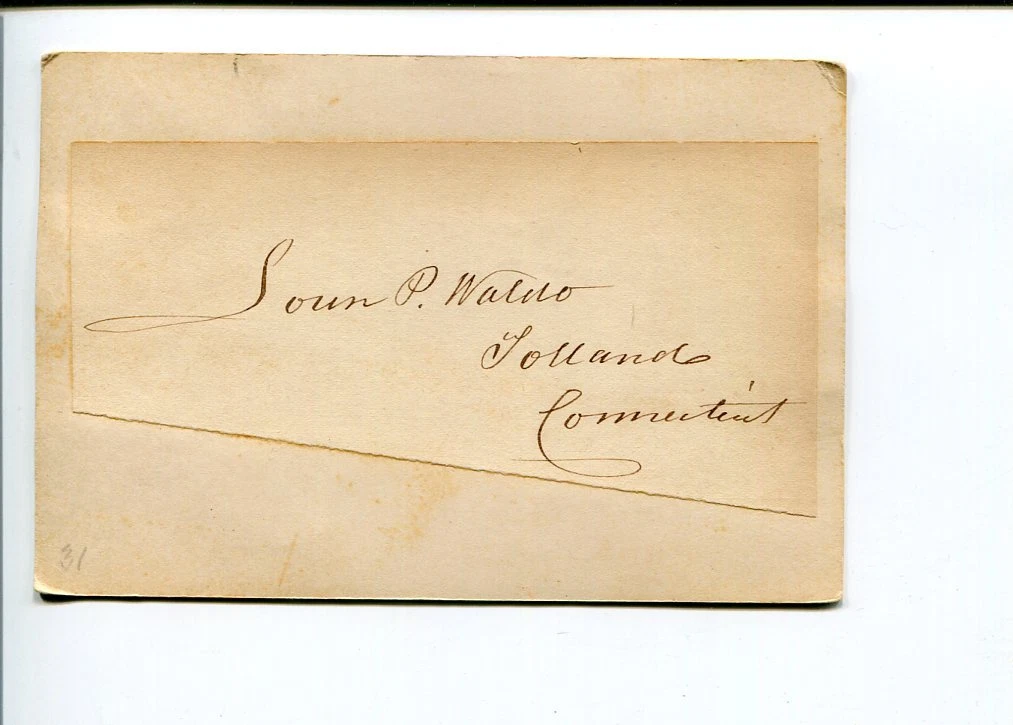 Loren P. Waldo
Tolland
Connecticut
31